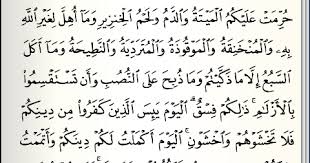 حُرِّمَتْ عَلَيْكُمُ ٱلْمَيْتَةُ وَٱلدَّمُ وَلَحْمُ ٱلْخِنزِيرِ وَمَآ أُهِلَّ لِغَيْرِ ٱللَّهِ
بِهِۦ وَٱلْمُنْخَنِقَةُ وَٱلْمَوْقُوذَةُ وَٱلْمُتَرَدِّيَةُ وَٱلنَّطِيحَةُ وَمَآ أَكَلَ
ٱلسَّبُعُ إِلَّا مَا ذَكَّيْتُمْ وَمَا ذُبِحَ عَلَى ٱلنُّصُبِ وَأَن تَسْتَقْسِمُوا۟
بِٱلْأَزْلَٰمِ ۚ ذَٰلِكُمْ فِسْقٌ ۗ ٱلْيَوْمَ يَئِسَ ٱلَّذِينَ كَفَرُوا۟ مِن دِينِكُمْ
فَلَا تَخْشَوْهُمْ وَٱخْشَوْنِ ۚ ٱلْيَوْمَ أَكْمَلْتُ لَكُمْ دِينَكُمْ وَأَتْمَمْتُ